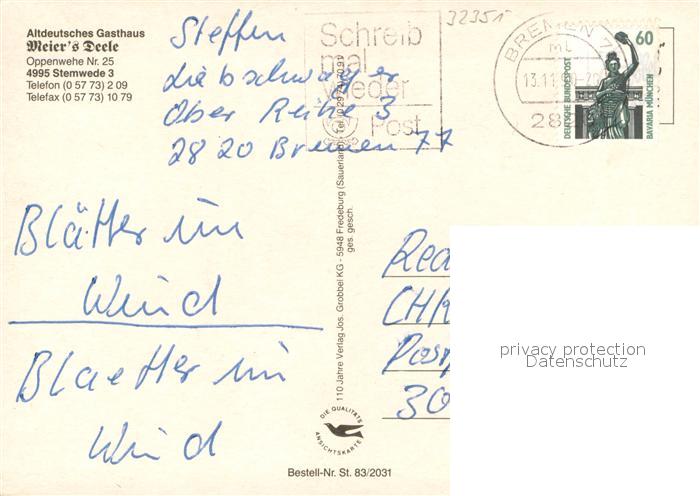 Altdeutsches Gasthaus
Meier's Deele
Oppenwehe Nr. 25
4995 Stemwede 3
Telefon (0 57 73) 2 09
Telefax (0 57 73) 10 79
Steffen
Liebschwager
Ober Reihe 3
2820 Bremen 77
32351
Schreib
mal
wieder
Post
BREMEN 7
mt
13.11
28
60
DEUTSCHE BUNDESPOST
BAVARIA MÜNCHEN
Blätter im
Wind
Blaetter im
Wind
110 Jahre Verlag Jos. Grobbel KG - 5948 Fredeburg (Sauerland)
ges. gesch.
DIE QUALITÄTS
ANSICHTSKARTE
Bestell-Nr. St. 83/2031
Red
CHR
Post
30
privacy protection
Datenschutz